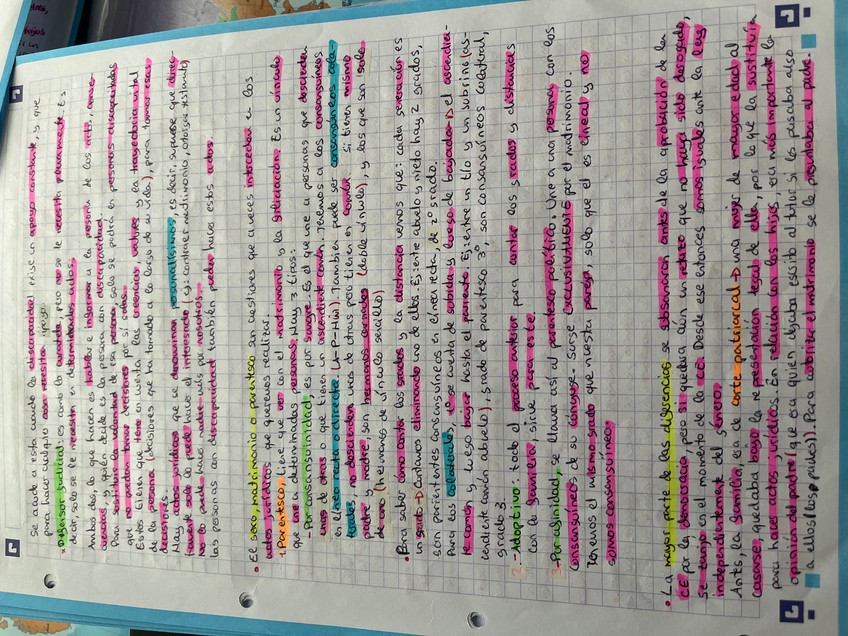 Se acude a esta cuando la discapacidad exige un apoyo constante, y que
para hacer cualquier cosa necesita apoyo.
• Defensor judicial: es como la curatela, pero no se le necesita plenamente. Es
decir, solo se le necesita en determinados actos.
Ambos dos, lo que hacen es hablar e informar a la persona de los actos, aconse-
jarles, y quien decide es la persona con discapacidad.
Para sustituir la voluntad de esa persona solo se podrá en personas discapacitadas
que no puedan tomar decisiones por sí solas.
Estos tienen que tener en cuenta las creencias, valores y la trayectoria vital
de la persona (decisiones que ha tomado a lo largo de su vida), para tomar esas
decisiones.
Hay actos jurídicos que se denominan personalísimos, es decir, supone que direc-
tamente solo lo puede hacer el interesado (ej: contraer matrimonio, otorgar testamento)
No lo puede hacer nadie más por nosotros.
Las personas con discapacidad también pueden hacer estos actos.
• El sexo, matrimonio o parentesco son cuestiones que a veces interceden en los
actos jurídicos que queremos realizar.
• Parentesco, tiene que ver con el matrimonio y la filiación. Es un vínculo
que une a determinadas personas. Hay 3 tipos:
- Por consanguinidad, es por sangre. Es el que une a personas que descienden
unas de otras que tienen un ascendiente común. Tenemos a los consanguíneos
en línea recta o directa (A-P-H(N)). También puede ser consanguíneos cola-
terales, no descienden unos de otros pero tienen en común. Si tienen mismo
padre y madre, son hermanos carnales (doble vínculo), y los que son solo
de uno (hermanos de vínculo sencillo)
• Para saber cómo contar los grados y la distancia vemos que: cada generación es
un grado → Contamos eliminando uno de ellos. Ej: entre abuelo y nieto hay 2 grados,
son parientes consanguíneos en línea recta, de 2º grado.
Para los colaterales, se cuenta de subida y luego de bajada → el ascendien-
te común, y luego bajar hasta el pariente. Ej: entre un tío y un sobrino (as-
cendiente común abuelo), grado de parentesco 3º, son consanguíneos colateral,
grado 3.
2.- Adoptivo: todo el proceso anterior para contar los grados y distancias
con la familia, sirve para este.
3- Por afinidad, se llama así al parentesco político. Une a una persona con los
consanguíneos de su cónyuge - Surge EXCLUSIVAMENTE por el matrimonio.
Tenemos el mismo grado que nuestra pareja, solo que él es lineal y no
somos consanguíneos.
• La mayor parte de las diferencias se subsanaron antes de la aprobación de la
CE por la democracia, pero si quedara aún un retazo que no haya sido derogado,
se derogó en el momento de la CE. Desde ese entonces somos iguales ante la ley
independientemente del género.
Antes, la familia, era de corte patriarcal → una mujer de mayor edad al
casarse, quedaba bajo la representación legal de ella, por lo que la sustituía
para hacer actos jurídicos. En relación con los hijos, era más importante la
opinión del padre (que era quien dejaba escrito al tutor si les pasaba algo
a ellos (los padres)). Para solicitar el matrimonio se le preguntaba al padre.